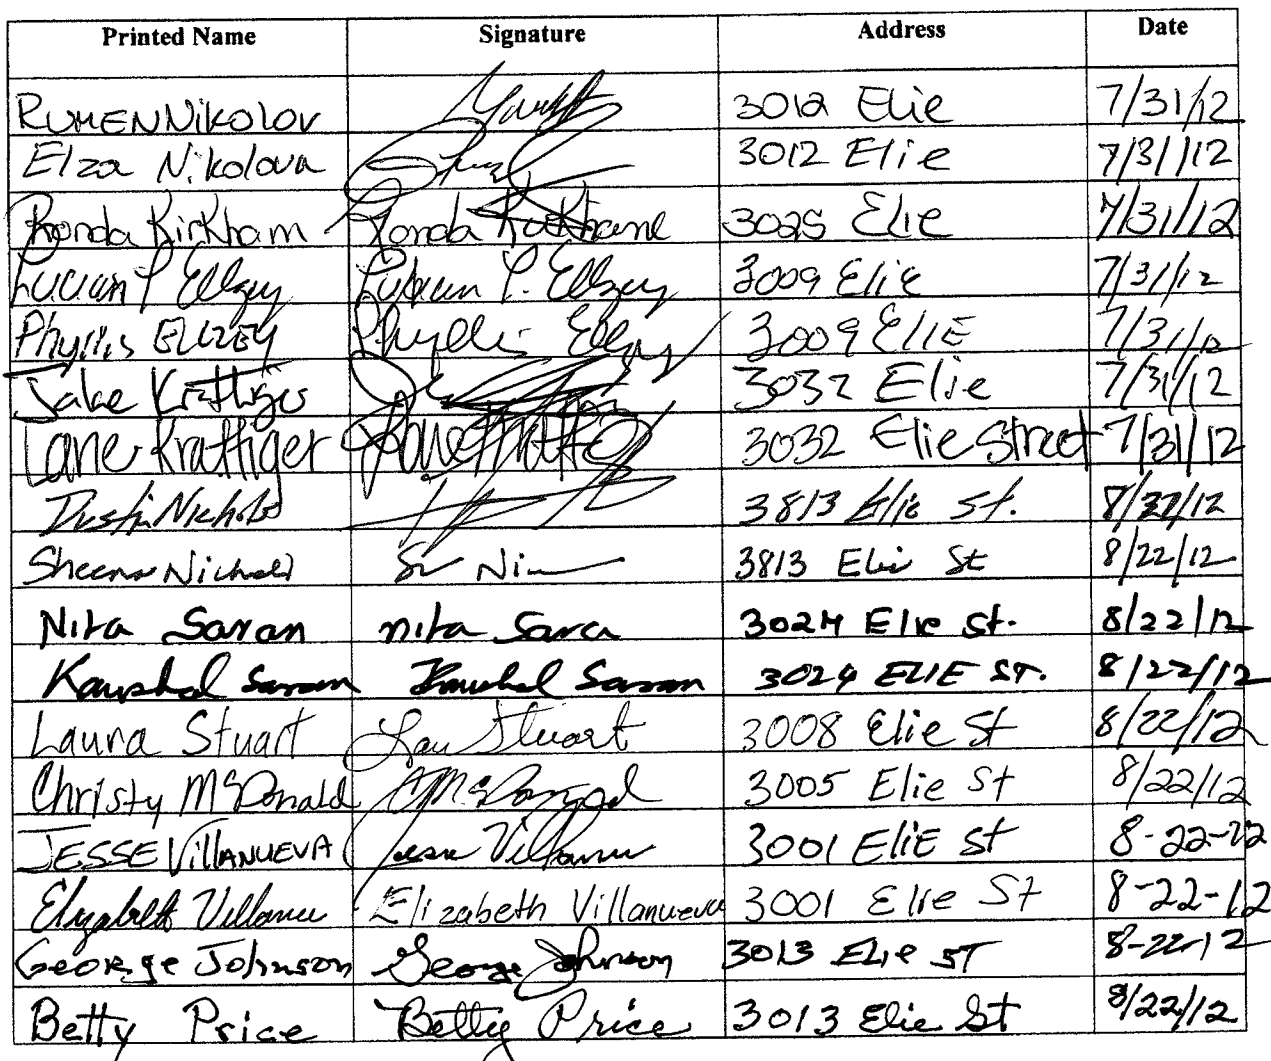 Printed Name Signature Address Date
RUMEN NIKOLOV 3012 Elie 7/31/12
Elza Nikolova 3012 Elie 7/31/12
Ronda Kirkham Ronda 3025 Elie 7/31/12
Lucian P Ellzey P. Ellzey 3009 Elie 7/31/12
Phyllis ELLZEY Phyllis Ellzey 3009 ELIE 7/31/12
Jake Krattiger 3032 Elie 7/31/12
Lane Krattiger Lane 3032 Elie Street 7/31/12
Dustin Nichols 3813 Elie St. 12
Nichols 3813 Elie St 8/22/12
Nita Saran nita 3024 Elie St. 8/22/12
Kaushal Saran Kaushal Saran 3024 ELIE ST. 8/22/12
Laura Stuart Stuart 3008 Elie St 8/22/12
Christy McDonald McDonald 3005 Elie St 8/22/12
JESSE VILLANUEVA Jesse 3001 ELIE St 8-22-12
Elizabeth Elizabeth Villanueva 3001 Elie St 8-22-12
George Johnson George Johnson 3013 Elie ST 8-22-12
Betty Price Betty Price 3013 Elie St 8/22/12